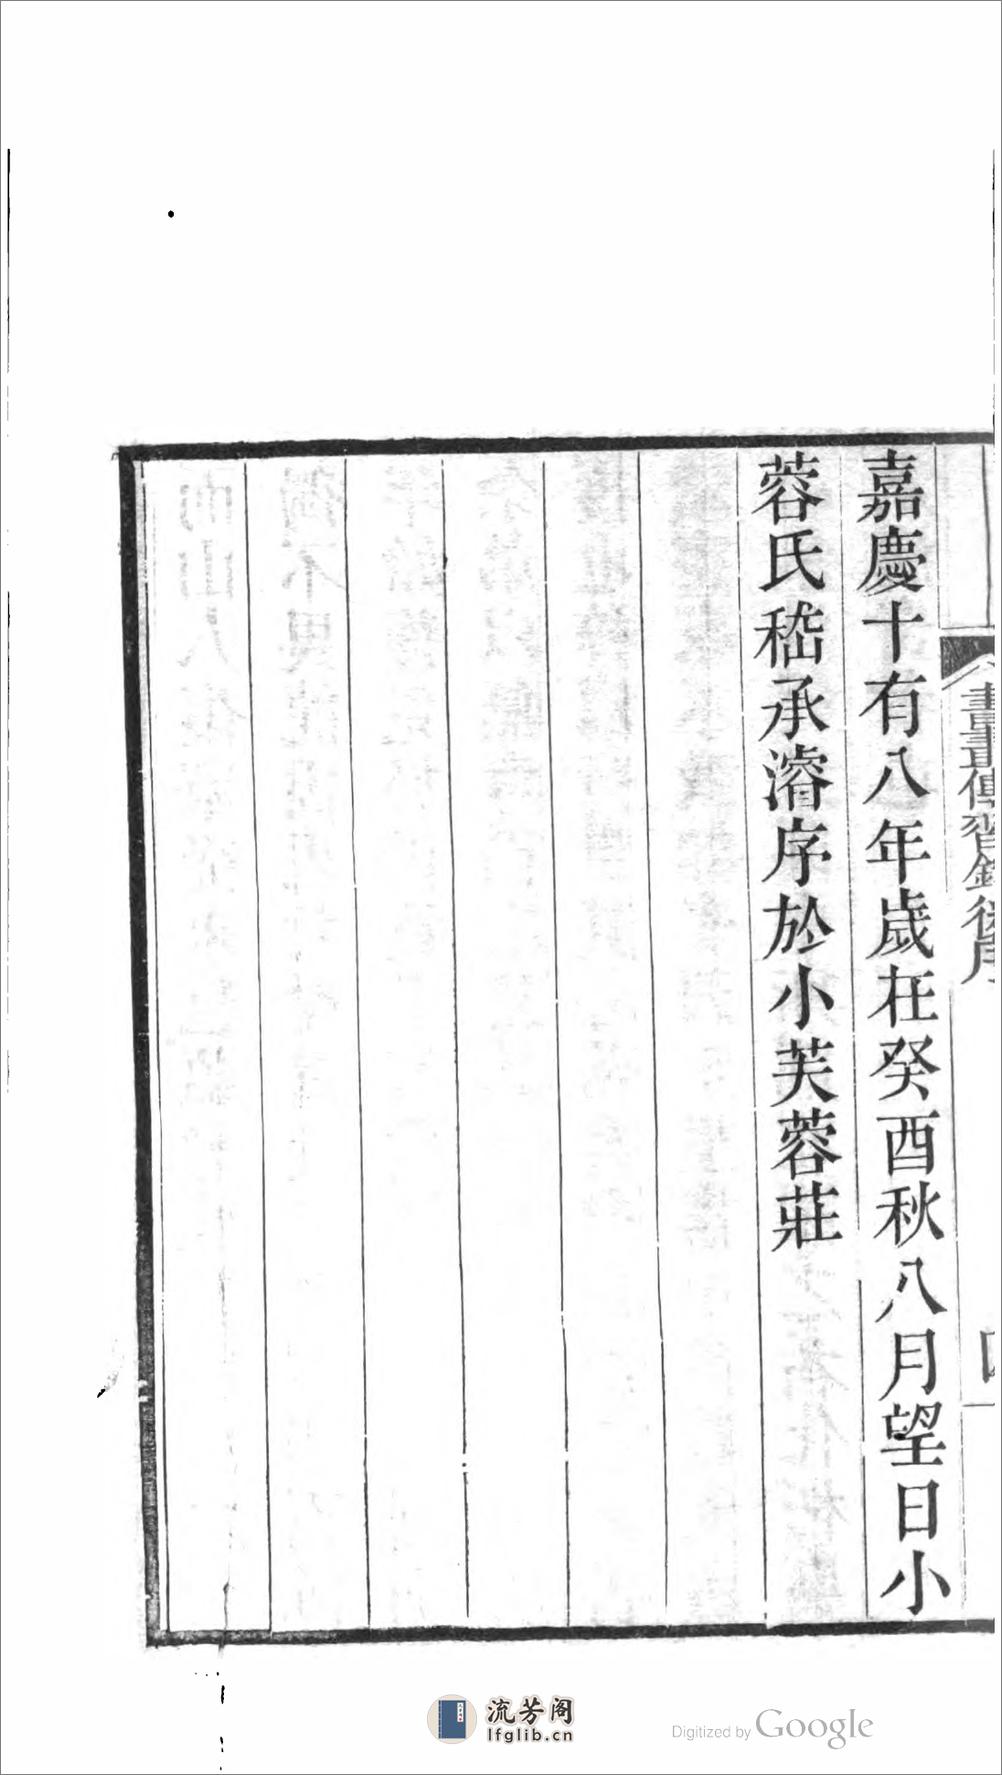 畫耳傳習錄後序
四
嘉慶十有八年歲在癸酉秋八月望日小
蓉氏嵇承濬序於小芙蓉莊
流芳阁
lfglib.cn
Digitized by Google